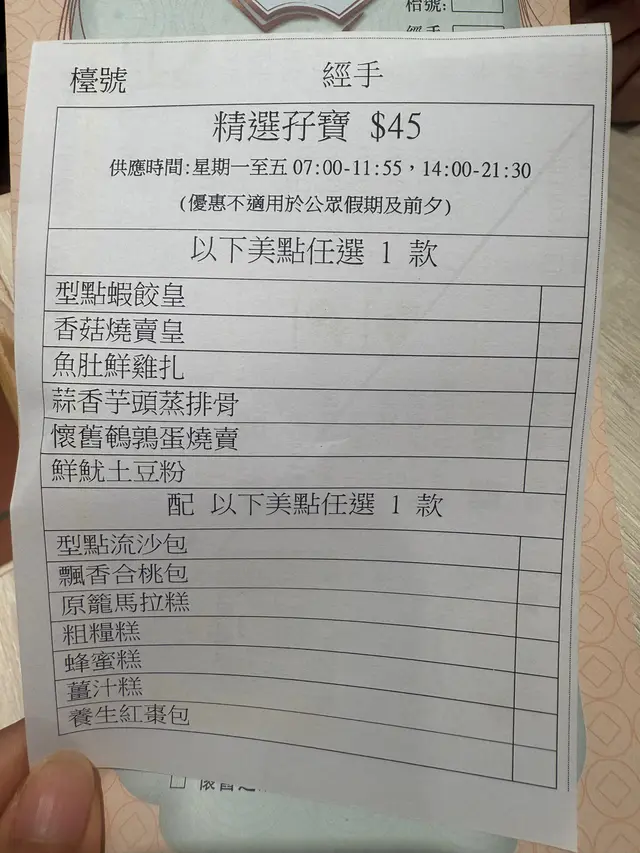 枱號:
檯號 經手
精選孖寶 $45
供應時間:星期一至五 07:00-11:55，14:00-21:30
(優惠不適用於公眾假期及前夕)
以下美點任選 1 款
型點蝦餃皇
香菇燒賣皇
魚肚鮮雞扎
蒜香芋頭蒸排骨
懷舊鵪鶉蛋燒賣
鮮魷土豆粉
配 以下美點任選 1 款
型點流沙包
飄香合桃包
原籠馬拉糕
粗糧糕
蜂蜜糕
薑汁糕
養生紅棗包